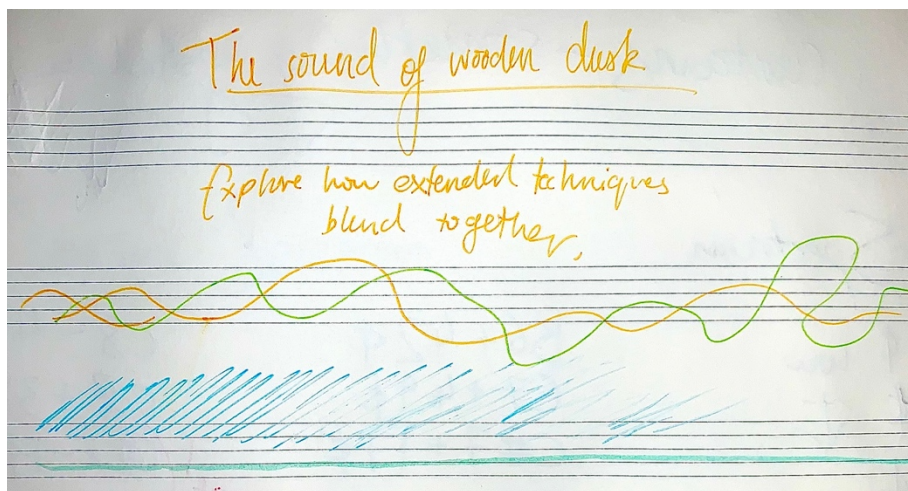 The sound of wooden dusk
Explore how extended techniques
blend together,